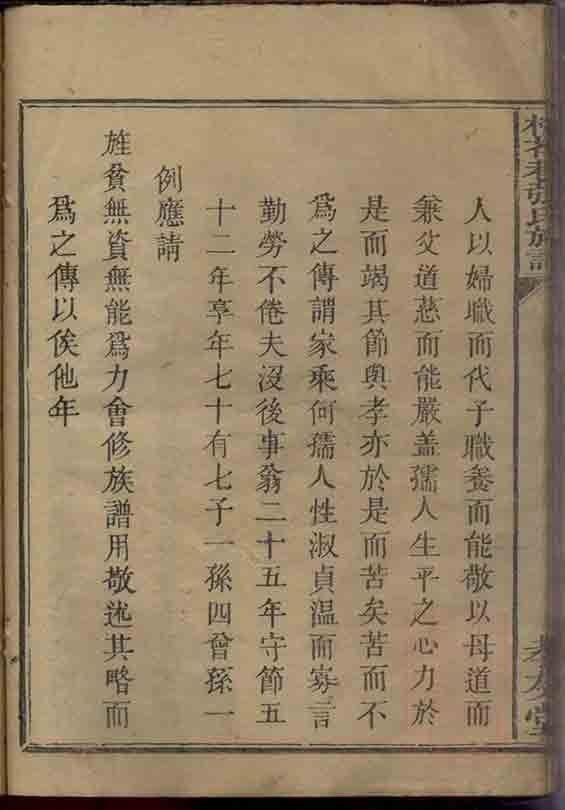 張氏族譜
堂
人以婦職而代子職養而能敬以母道而
兼父道慈而能嚴盖孺人生平之心力於
是而竭其節與孝亦於是而苦矣苦而不
爲之傳謂家乘何孺人性淑貞温而寡言
勤勞不倦夫沒後事翁二十五年守節五
十二年享年七十有七子一孫四曾孫一
例應請
旌貧無資無能爲力會修族譜用敬述其略而
爲之傳以俟他年